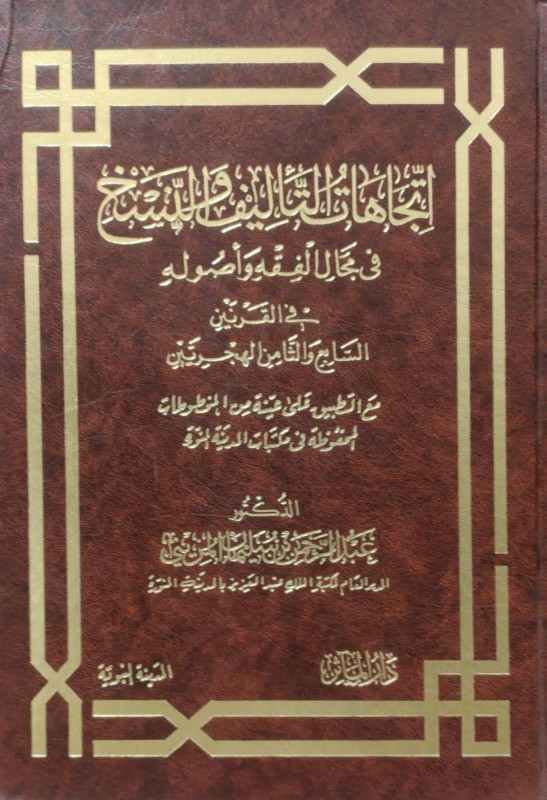 اتجاهات التأليف والنسخ
في مجال الفقه وأصوله
في القرنين
السابع والثامن الهجريين
مع التطبيق على عينة من المخطوطات
المحفوظة في مكتبات المدينة المنورة
الدكتور
عبد الرحمن بن سليمان المزيني
المدير العام لمكتبة الملك عبد العزيز بالمدينة المنورة
دار المآثر
المدينة النبوية